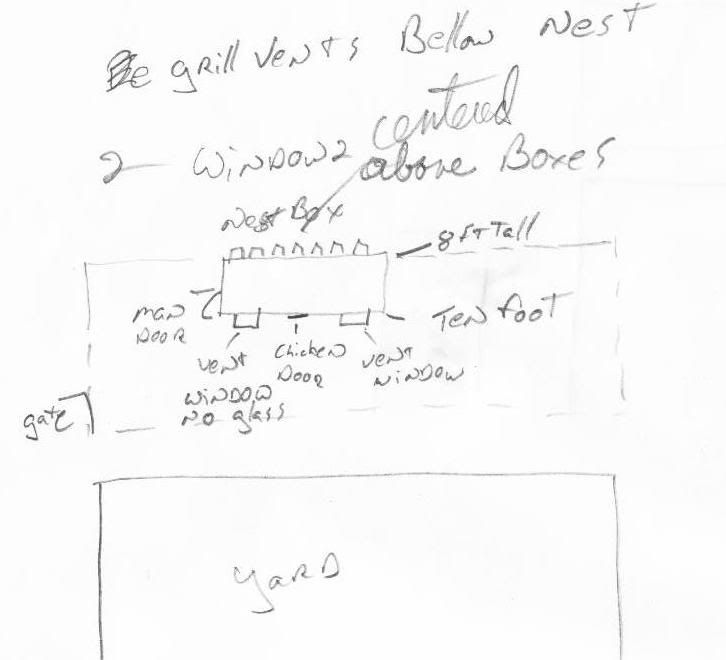 e grill Vents Bellow Nest
centered
2 - Window2 above Boxes
Nest Box
8ft Tall
man
Door
Ten foot
vent
window
No glass
Chicken
Door
vent
window
gate
Yard